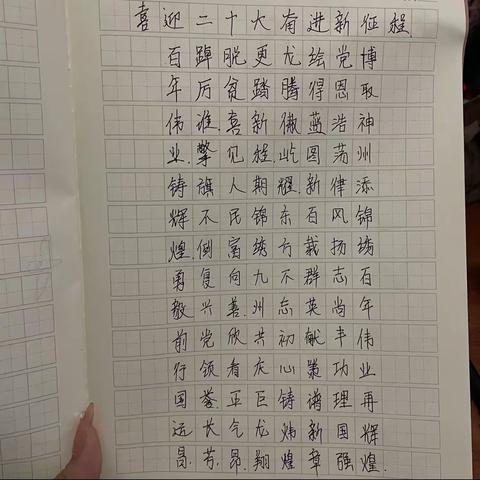 喜迎二十大奋进新征程
百年伟业铸辉煌，勇毅前行国运昌。
踔厉谁擎旗不倒，复兴党领誉长芳。
脱贫喜见人民富，向善欣看正气昂。
更踏新程期锦绣，九州共庆巨龙翔。
龙腾傲屹耀东方，不忘初心铸炜煌。
绘得蓝图新百载，群英献策谱新章。
党恩浩荡律风扬，志尚丰功理国强。
博取神州添锦绣，百年伟业再辉煌。